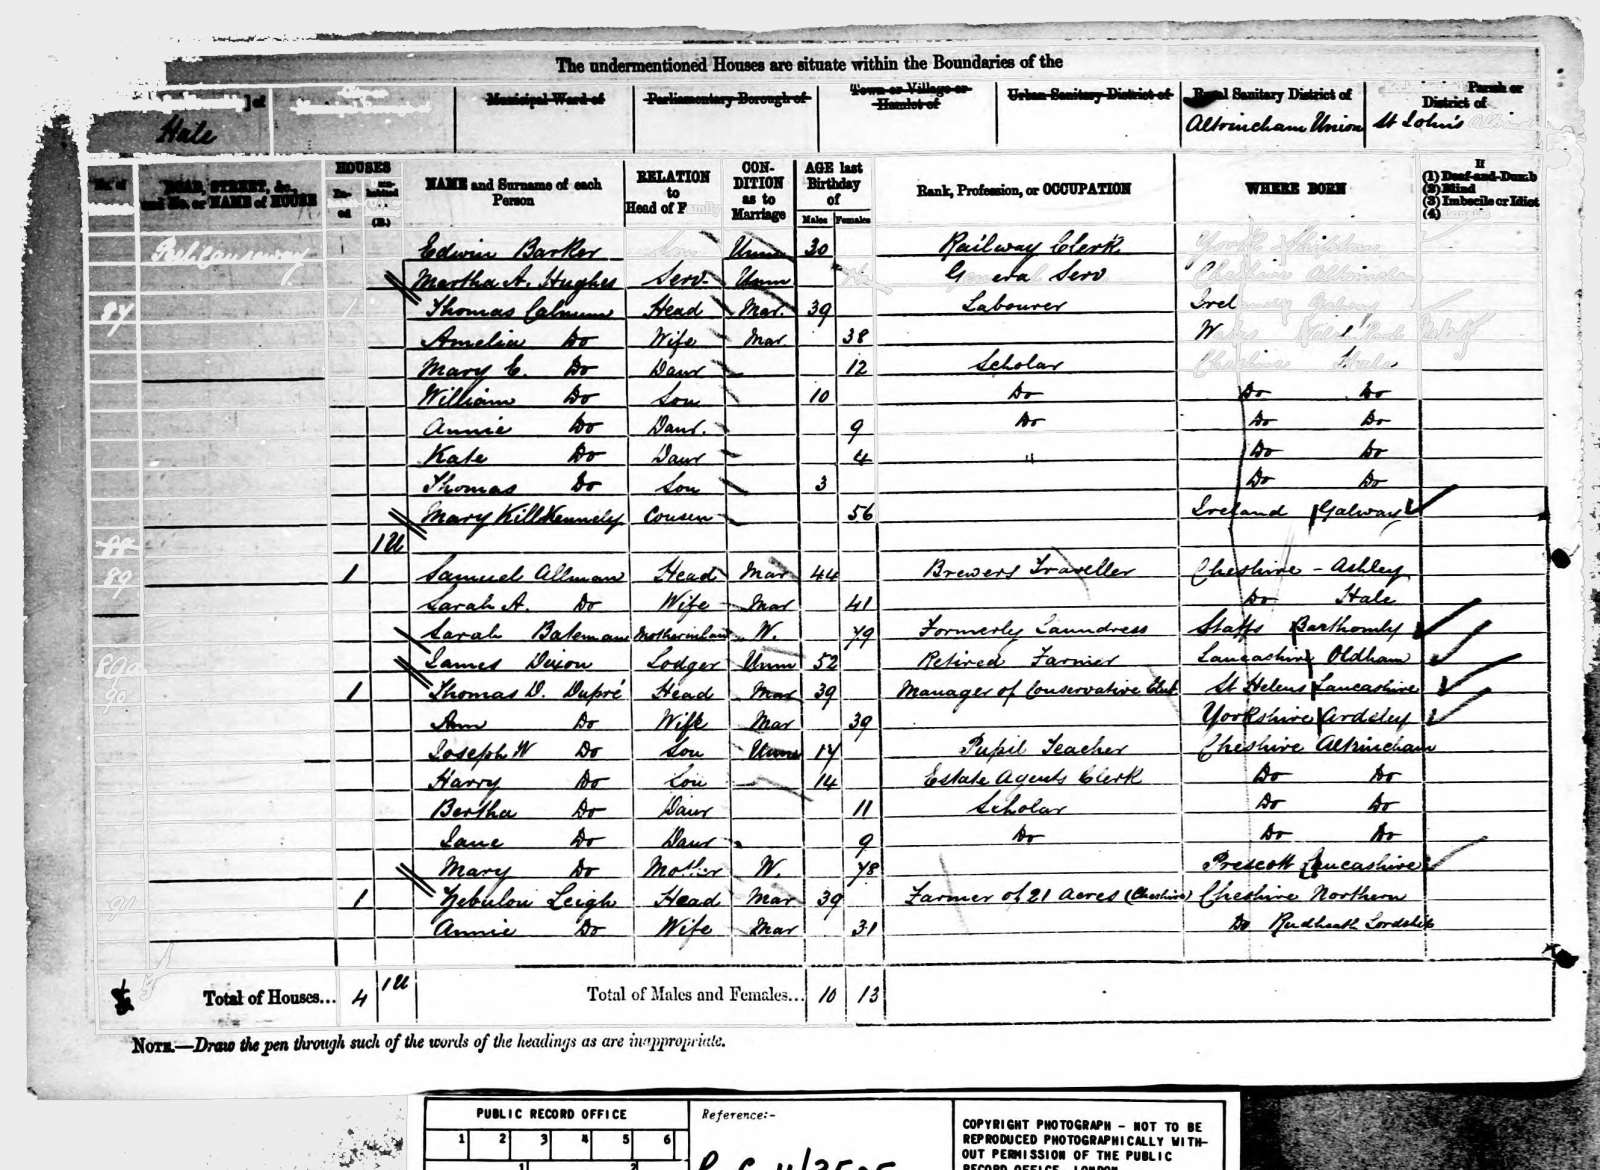 The undermentioned Houses are situate within the Boundaries of the
] of Municipal Ward of Parliamentary Borough of Town or Village or Hamlet of Urban Sanitary District of Rural Sanitary District of Parish or District of
Hale Altrincham Union St John's
No. of ROAD, STREET, &c., and No. or NAME of HOUSE HOUSES NAME and Surname of each Person RELATION to Head of Family CONDITION as to Marriage AGE last Birthday of Males Females Rank, Profession, or OCCUPATION WHERE BORN (1) Deaf-and-Dumb (2) Blind (3) Imbecile or Idiot (4)
Edwin Barker Unm 30 Railway Clerk
Martha A. Hughes Serv Unm General Serv
87 Thomas Calmum Head Mar. 39 Labourer Irel
Amelia Do Wife Mar 38
Mary E. Do Daur 12 Scholar Cheshire Hale
William Do Son 10 Do Do Do
Annie Do Daur. 9 Do Do Do
Kate Do Daur 4 " Do Do
Thomas Do Son 3 Do Do
Mary KillKennely Cousen 56 Ireland Galway
88 1U
89 1 Samuel Allman Head Mar 44 Brewers Traveller Cheshire - Ashley
Sarah A. Do Wife Mar 41 Do Hale
Sarah Bateman Motherinlaw W. 79 Formerly Laundress Staffs Barthomly
89a James Dixon Lodger Unm 52 Retired Farmer Lancashire Oldham
90 1 Thomas D. Dupré Head Mar 39 Manager of Conservative Club St Helens Lancashire
Ann Do Wife Mar 39 Yorkshire Ardsley
Joseph W Do Son Unm 17 Pupil Teacher Cheshire Altrincham
Harry Do Son 14 Estate Agents Clerk Do Do
Bertha Do Daur 11 Scholar Do Do
Jane Do Daur 9 Do Do Do
Mary Do Mother W. 78 Prescott Lancashire
91 1 Zebulon Leigh Head Mar 39 Farmer of 21 Acres (Cheshire) Cheshire Northern
Annie Do Wife Mar 31 Do Rudheath Lordship
Total of Houses... 4 1U Total of Males and Females... 10 13
NOTE.—Draw the pen through such of the words of the headings as are inappropriate.
PUBLIC RECORD OFFICE Reference:-
1 2 3 4 5 6
1 2
COPYRIGHT PHOTOGRAPH - NOT TO BE
REPRODUCED PHOTOGRAPHICALLY WITH-
OUT PERMISSION OF THE PUBLIC
RECORD OFFICE, LONDON